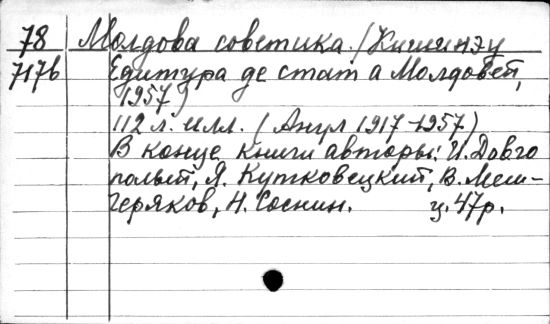 78 Молдова советика. (Кишинэу
7176 Едитура де стат а Молдовей,
1957)
112 л. илл. (Анул 1917-1957)
В конце книги авторы: И. Довго
полый, Я. Кутковецкий, В. Меш-
черяков, Н. Соснин. ц. 47р.